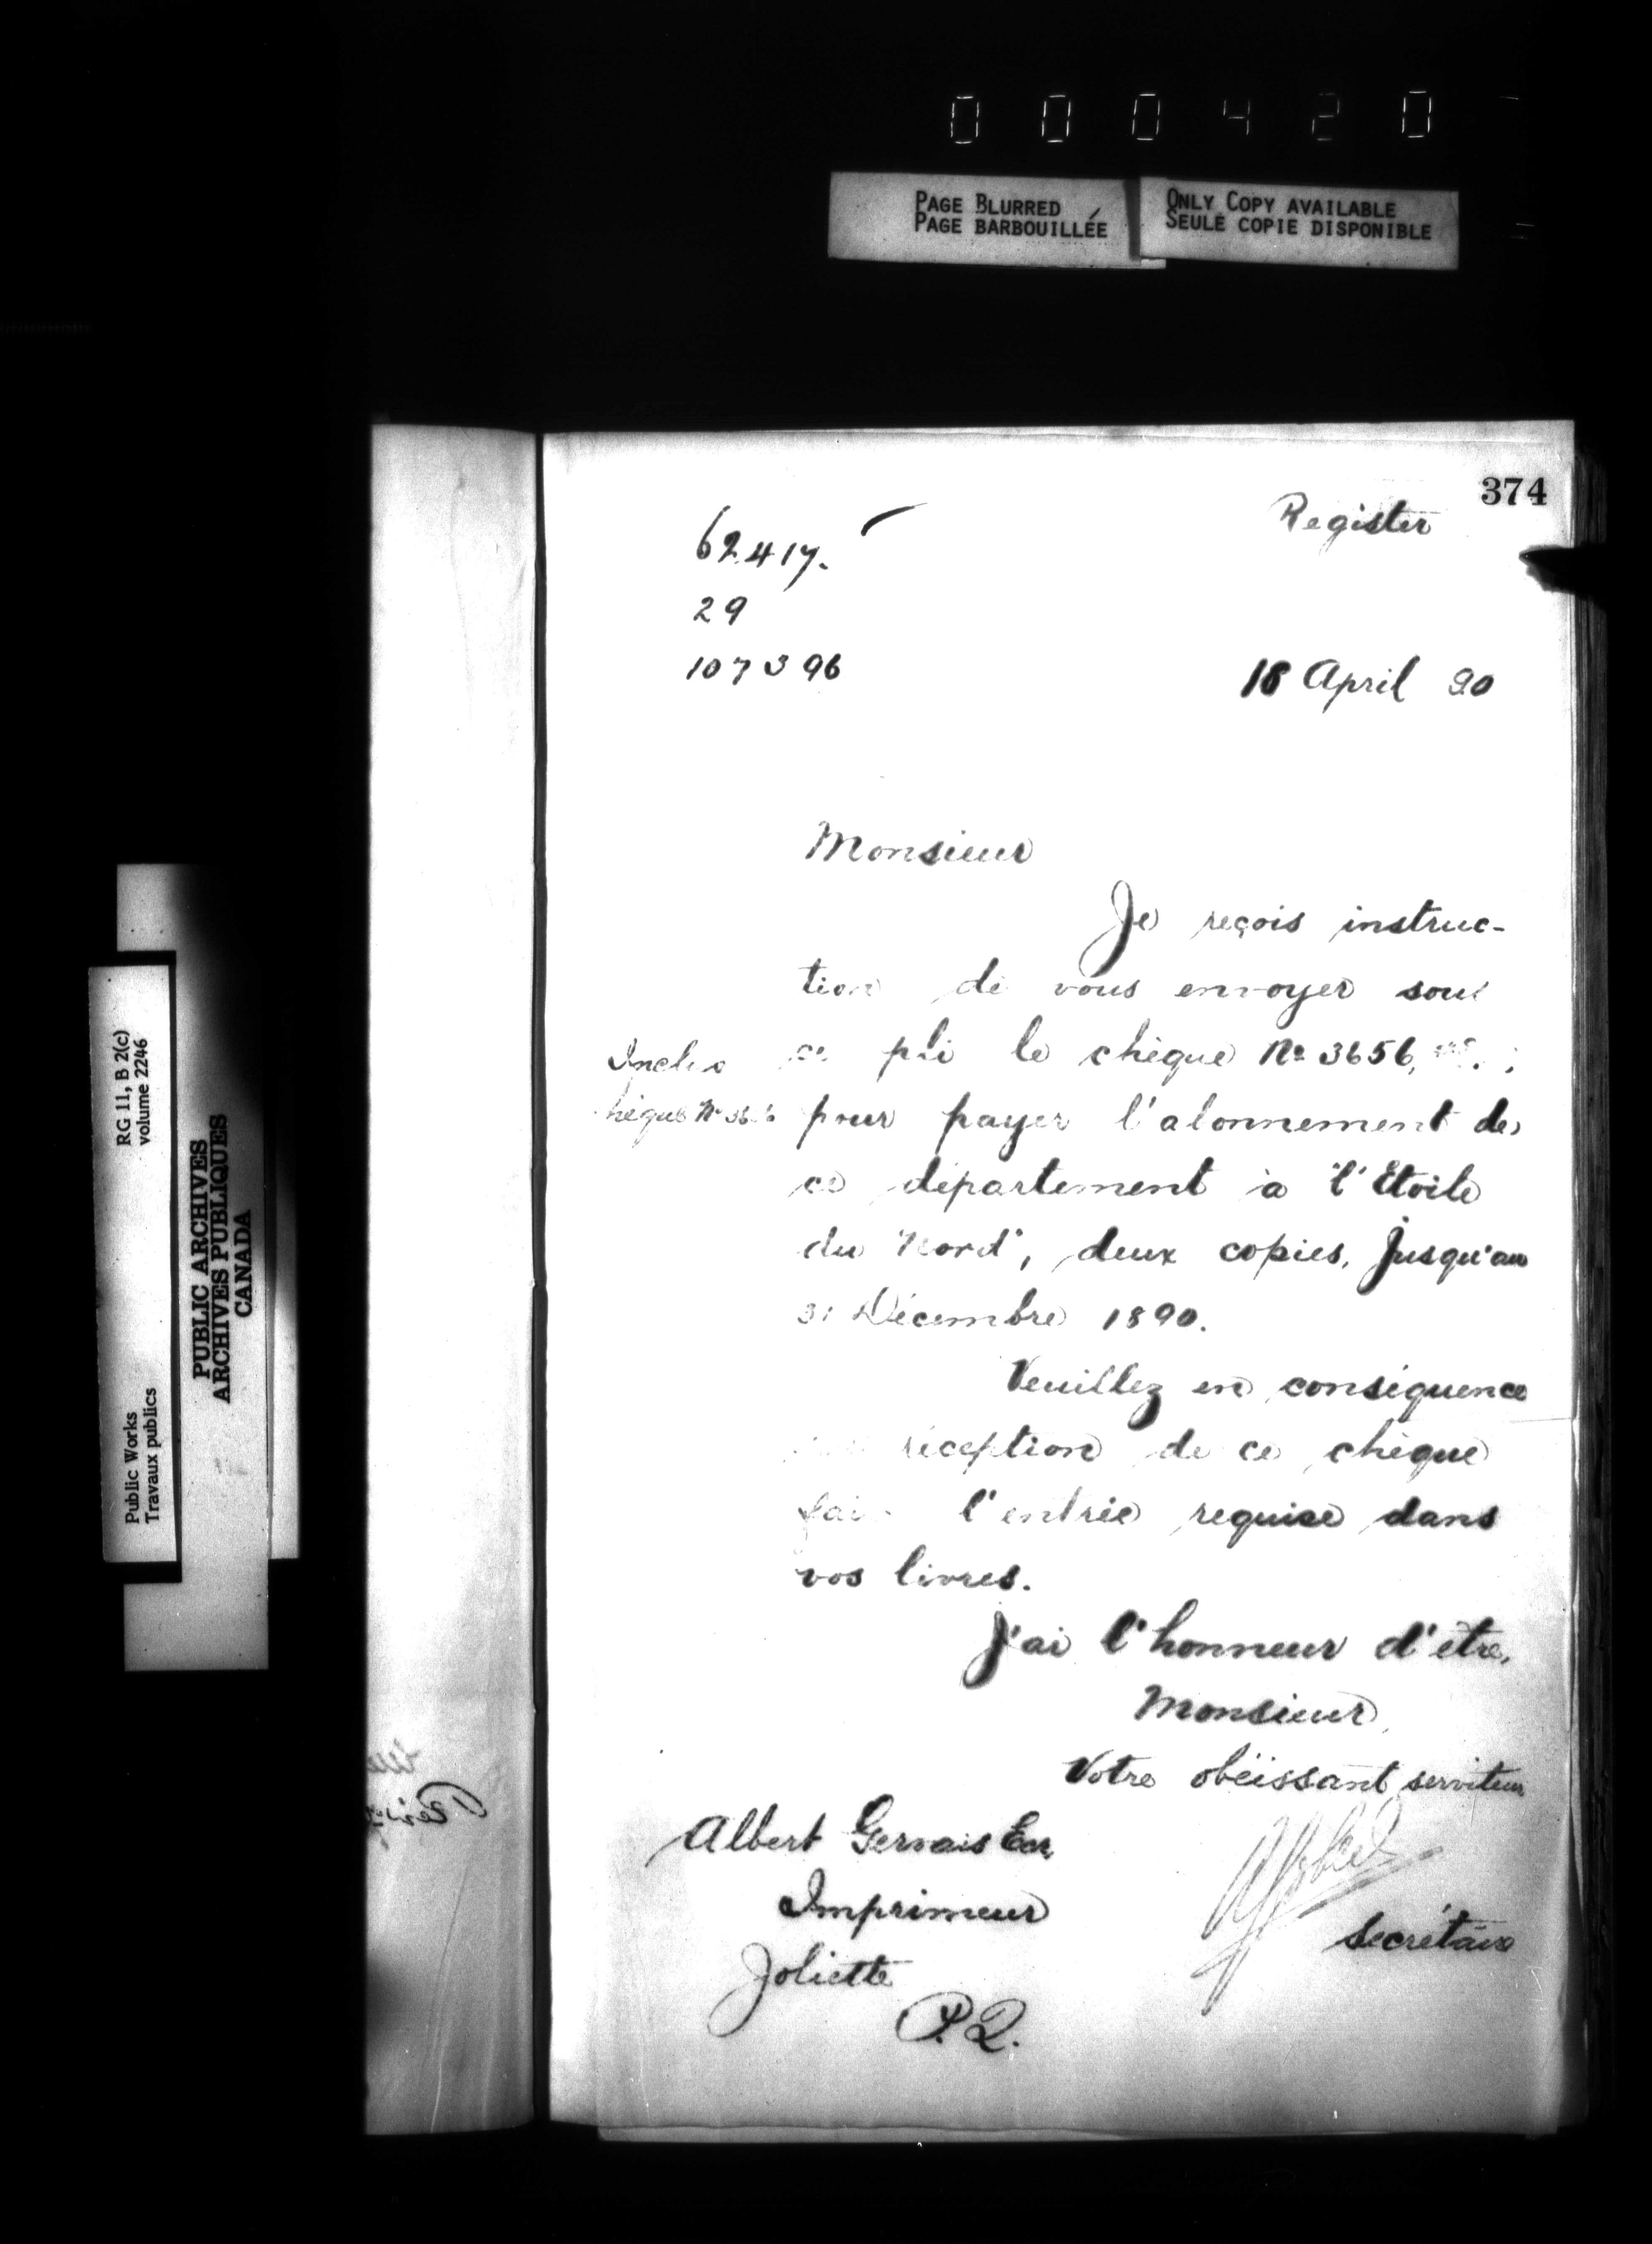 000420
PAGE BLURRED
PAGE BARBOUILLÉE
ONLY COPY AVAILABLE
SEULE COPIE DISPONIBLE
RG 11, B 2(c)
volume 2246
PUBLIC ARCHIVES
ARCHIVES PUBLIQUES
CANADA
Public Works
Travaux publics
374
Register
62417.
29
107396
18 April 90
Monsieur
Je reçois instruc-
tion de vous envoyer sous
ce pli le chèque No 3656,
Inclus
chèque No 3656
pour payer l'abonnement de
ce département à "l'Etoile
du Nord", deux copies, jusqu'au
31 Décembre 1890.
Veuillez en conséquence
réception de ce chèque
l'entrée requise dans
vos livres.
J'ai l'honneur d'être,
Monsieur,
Votre obéissant serviteur
Albert Gervais Ecr,
Imprimeur
Joliette
P.Q.
Secrétaire